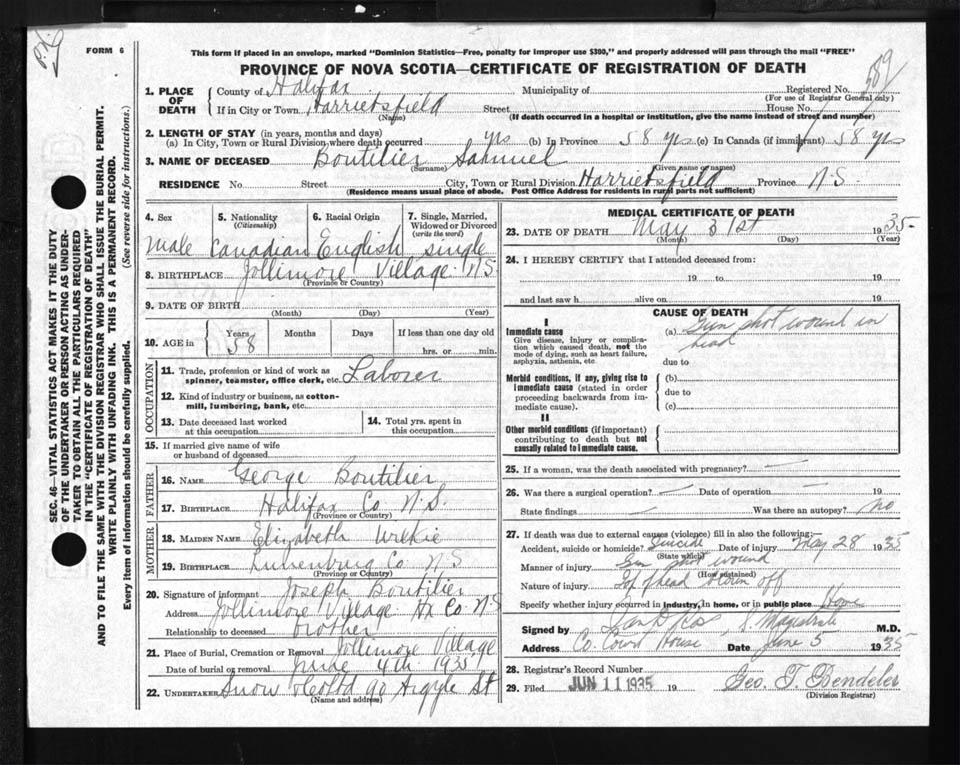 FORM 6
This form if placed in an envelope, marked "Dominion Statistics—Free, penalty for improper use $300," and properly addressed will pass through the mail "FREE"
PROVINCE OF NOVA SCOTIA—CERTIFICATE OF REGISTRATION OF DEATH
589
1. PLACE OF DEATH
County of Halifax Municipality of Registered No.
(For use of Registrar General only)
If in City or Town Harrietsfield Street House No.
(Name) (If death occurred in a hospital or institution, give the name instead of street and number)
2. LENGTH OF STAY (in years, months and days)
(a) In City, Town or Rural Division where death occurred yrs (b) In Province 58 yrs (c) In Canada (if immigrant) 58 yrs
3. NAME OF DECEASED Boutilier Samuel
(Surname) (Given name or names)
RESIDENCE No. Street City, Town or Rural Division Harrietsfield Province N.S
(Residence means usual place of abode. Post Office Address for residents in rural parts not sufficient)
SEC. 46—VITAL STATISTICS ACT MAKES IT THE DUTY
OF THE UNDERTAKER OR PERSON ACTING AS UNDER-
TAKER TO OBTAIN ALL THE PARTICULARS REQUIRED
IN THE "CERTIFICATE OF REGISTRATION OF DEATH"
AND TO FILE THE SAME WITH THE DIVISION REGISTRAR WHO SHALL ISSUE THE BURIAL PERMIT.
WRITE PLAINLY WITH UNFADING INK. THIS IS A PERMANENT RECORD.
Every item of Information should be carefully supplied. (See reverse side for instructions.)
4. Sex 5. Nationality (Citizenship) 6. Racial Origin 7. Single, Married, Widowed or Divorced (write the word)
Male Canadian English single
8. BIRTHPLACE Jollimore Village N.S
(Province or Country)
9. DATE OF BIRTH
(Month) (Day) (Year)
10. AGE in Years Months Days If less than one day old
58 hrs. or min.
OCCUPATION
11. Trade, profession or kind of work as spinner, teamster, office clerk, etc. Laborer
12. Kind of industry or business, as cotton-mill, lumbering, bank, etc.
13. Date deceased last worked at this occupation
14. Total yrs. spent in this occupation
15. If married give name of wife or husband of deceased
FATHER
16. NAME George Boutilier
17. BIRTHPLACE Halifax Co N.S.
(Province or Country)
MOTHER
18. MAIDEN NAME Elizabeth Wilkie
19. BIRTHPLACE Lunenburg Co. N S
(Province or Country)
20. Signature of informant Joseph Boutilier
Address Jollimore Village Hx Co N.S
Relationship to deceased brother
21. Place of Burial, Cremation or Removal Jollimore Village
Date of burial or removal June 4th 1935
22. UNDERTAKER Snow & Co Ltd 90 Argyle St
(Name and address)
MEDICAL CERTIFICATE OF DEATH
23. DATE OF DEATH May 31st 1935
(Month) (Day) (Year)
24. I HEREBY CERTIFY that I attended deceased from:
19 to 19
and last saw h alive on 19
CAUSE OF DEATH
I
Immediate cause
Give disease, injury or complication which caused death, not the mode of dying, such as heart failure, asphyxia, asthenia, etc.
(a) Gun shot wound in head
due to
Morbid conditions, if any, giving rise to immediate cause (stated in order proceeding backwards from immediate cause).
(b)
due to
(c)
II
Other morbid conditions (if important) contributing to death but not causally related to immediate cause.
25. If a woman, was the death associated with pregnancy? —
26. Was there a surgical operation? — Date of operation — 19
State findings Was there an autopsy? no
27. If death was due to external causes (violence) fill in also the following:
Accident, suicide or homicide? Suicide Date of injury May 28 1935
(State which)
Manner of injury Gun shot wound
(How sustained)
Nature of injury Top of head blown off
Specify whether injury occurred in Industry, in home, or in public place Home
Signed by Magistrate M.D.
Address Co. Court House Date June 5 1935
28. Registrar's Record Number
29. Filed JUN 11 1935 19 Geo. T. Bendeler
(Division Registrar)